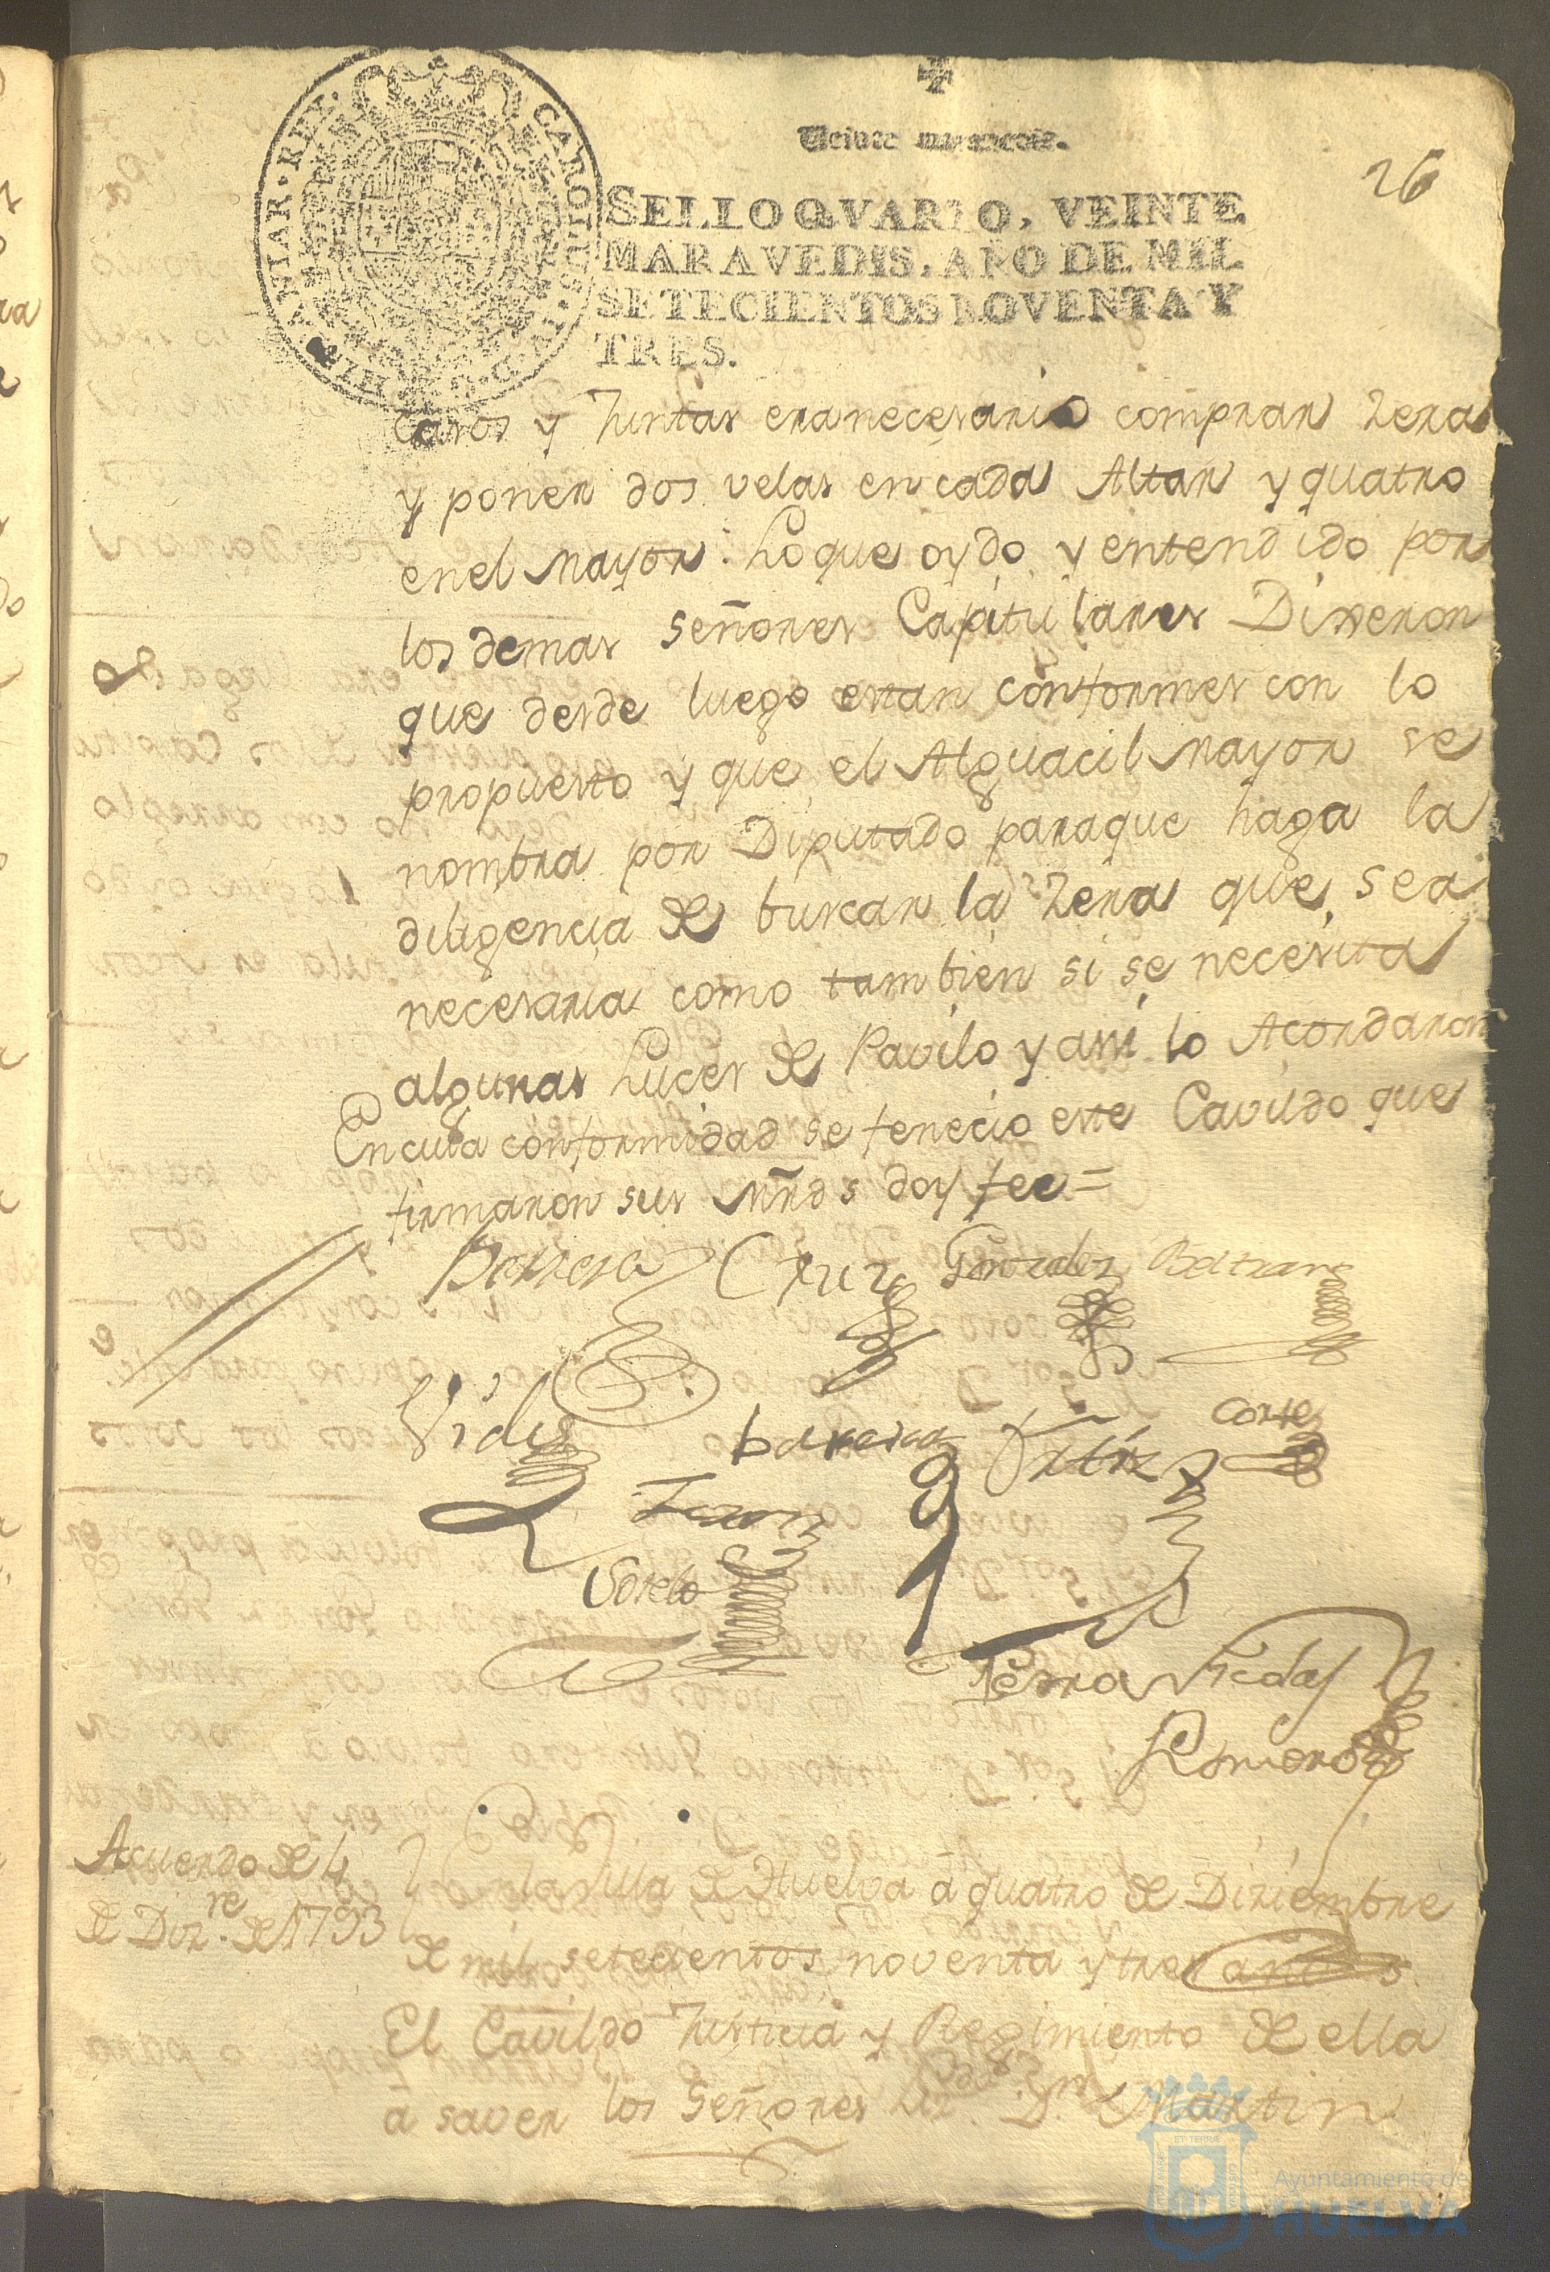 Veinte maravedis.
26
CAROLUS IV D G HISPANIAR REX
SELLO QVARTO, VEINTE
MARAVEDIS, AÑO DE MIL
SETECIENTOS NOVENTA Y
TRES.
caros y Juntas era necesario comprar zera
y poner dos velas en cada Altar y quatro
en el mayor. Lo que oydo y entendido por
los demas señores Capitulares Dixeron
que desde luego estan conformes con lo
propuesto y que el Alguacil mayor se
nombra por Diputado para que haga la
diligencia de buscar la zera que sea
necesaria como tambien si se necesita
algunas Luces de Pavilo y assi lo Acordaron
En cuia conformidad se fenecio este Cavildo que
firmaron sus mrds doy fee =
Barrera Cruz Gonzalez Beltran
Vides barrera Ortiz Cortes
Teron
Sotelo
Romero
Acuerdo de 4
de Diz.re de 1793
En la Villa de Huelva a quatro de Diziembre
de mil setecientos noventa y tres años
El Cavildo Justicia y Regimiento de ella
à saver los Señores Liz. Dn Martin
Ayuntamiento de
HUELVA